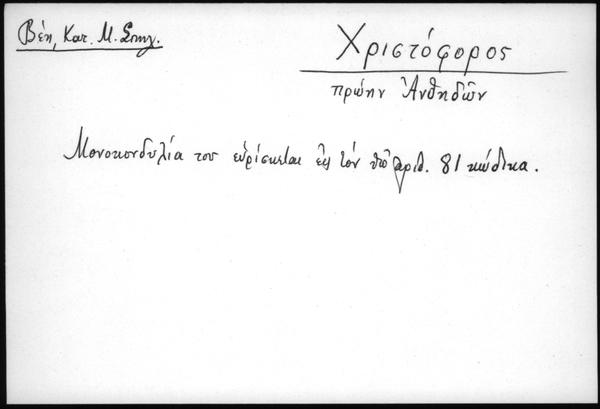 Βέη, Κατ. Μ. Σπηλ.
Χριστόφορος
πρώην Ἀνθηδῶν
Μονοκονδυλία του εὑρίσκεται εἰς τὸν ὑπ' αριθ. 81 κώδικα.